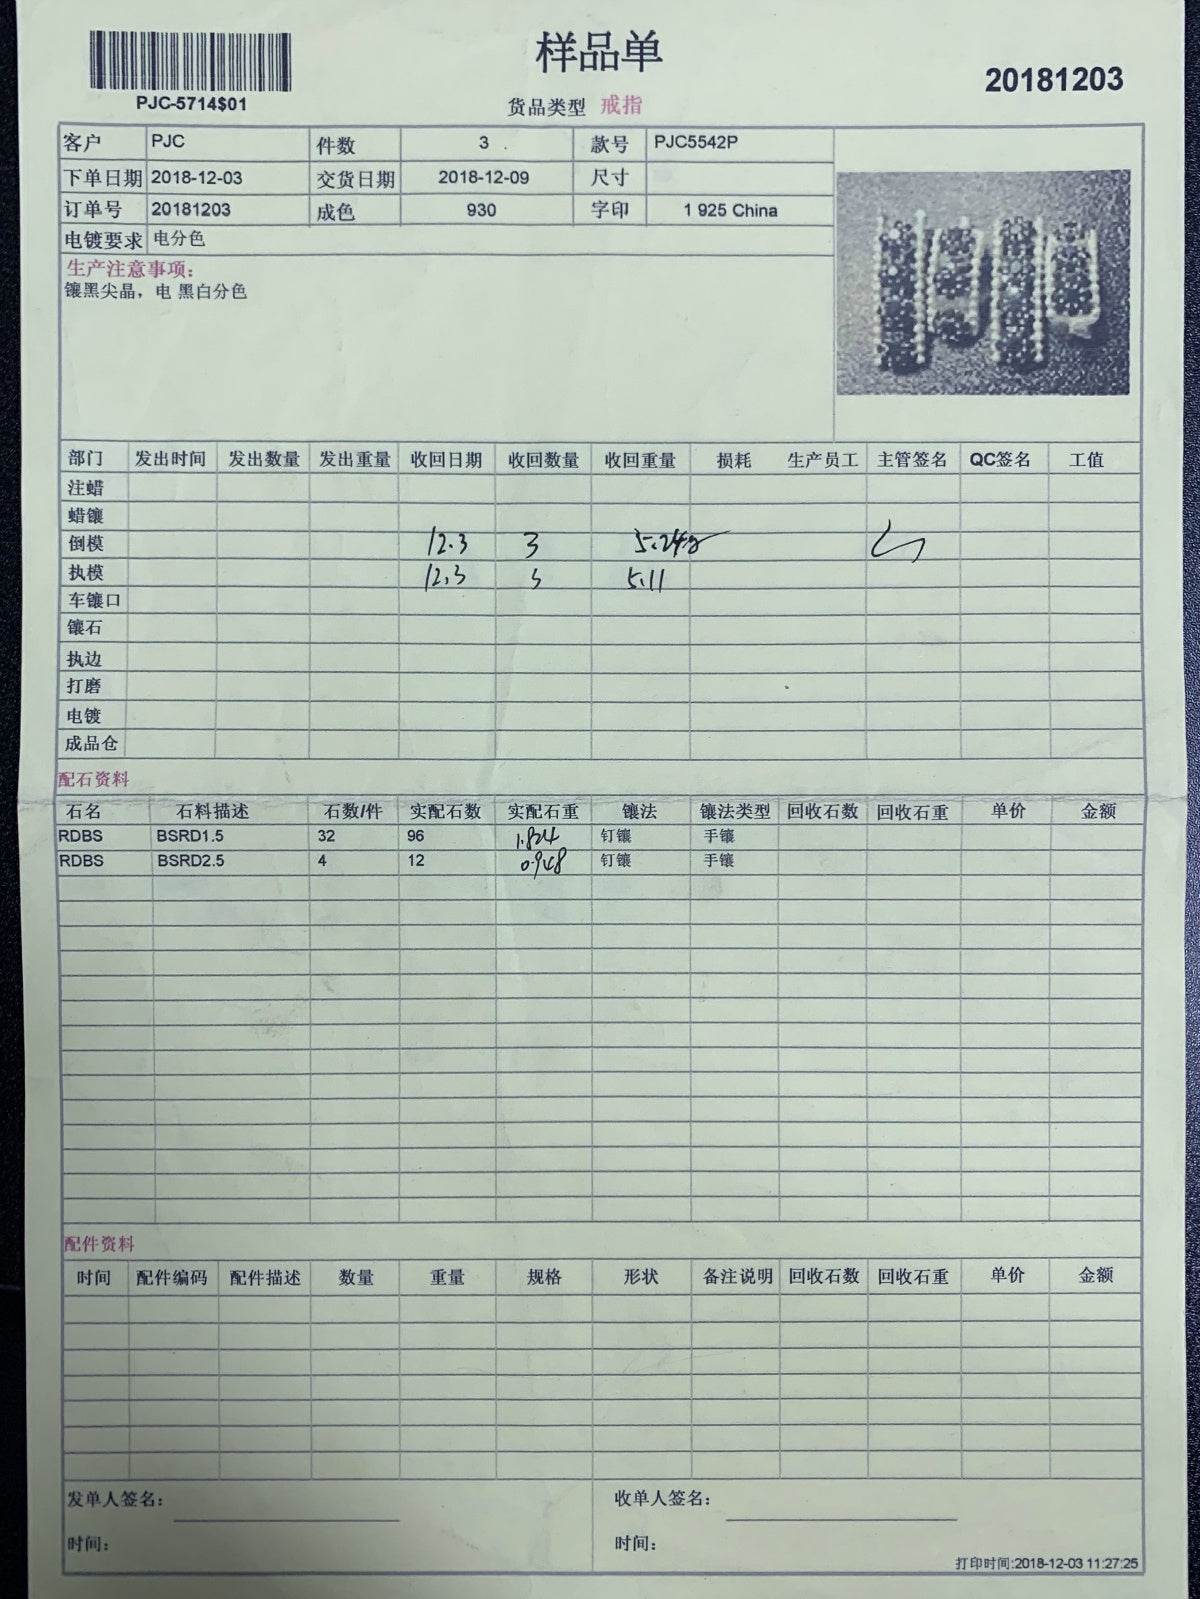 样品单
20181203
PJC-5714$01
货品类型 戒指
客户 PJC 件数 3 款号 PJC5542P
下单日期 2018-12-03 交货日期 2018-12-09 尺寸
订单号 20181203 成色 930 字印 1 925 China
电镀要求 电分色
生产注意事项:
镶黑尖晶，电 黑白分色
部门 发出时间 发出数量 发出重量 收回日期 收回数量 收回重量 损耗 生产员工 主管签名 QC签名 工值
注蜡
蜡镶
倒模 12.3 3 5.24g
执模 12.3 3 5.11
车镶口
镶石
执边
打磨
电镀
成品仓
配石资料
石名 石料描述 石数/件 实配石数 实配石重 镶法 镶法类型 回收石数 回收石重 单价 金额
RDBS BSRD1.5 32 96 1.824 钉镶 手镶
RDBS BSRD2.5 4 12 0.948 钉镶 手镶
配件资料
时间 配件编码 配件描述 数量 重量 规格 形状 备注说明 回收石数 回收石重 单价 金额
发单人签名: 收单人签名:
时间: 时间:
打印时间:2018-12-03 11:27:25